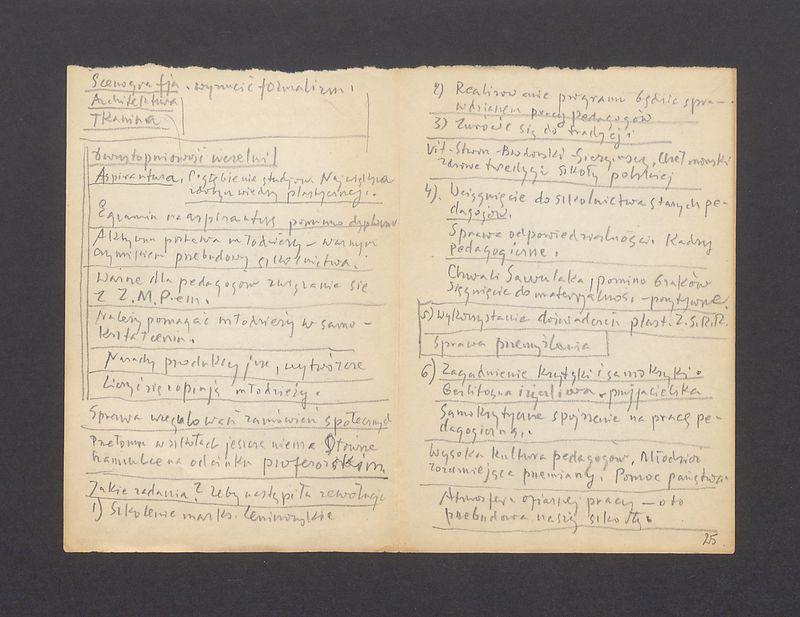 Scenografja. wyrzucić formalizm!
Architektura
Tkanina
Dwustopniowość uczelni
Aspirantura, Pogłębienie studjów. Największa
wiedzy plastycznej.
Egzamin na aspiranturę pomimo dyplomu
Aktywna postawa młodzieży – ważnym
czynnikiem przebudowy szkolnictwa.
Ważne dla pedagogów związanie się
z Z.M.P.em.
Należy pomagać młodzieży w samo-
kształceniu.
Narady produkcyjne, wytwórcze
Liczyć się z opinią młodzieży.
Sprawa zamówień społecznych
Przełomu w szkołach jeszcze niema Główne
hamulce na odcinku profesorskim
Jakie zadania? żeby nastąpiła rewolucja
1) Szkolenie marks. Leninowskie
2) Realizowanie programu będzie spraw-
dzianem pracy pedagogów
3) Zwrócić się do tradycji
Vit-Stwosz- Chełmoński
zdrowe tradycje szkoły polskiej
4). Wciągnięcie do szkolnictwa starych pe-
dagogów.
Sprawa odpowiedzialności. Kadry
pedagogiczne.
Chwali pomimo braków
Sięgnięcie do – pozytywne.
5) Wykorzystanie doświadczeń plast. Z.S.R.R.
Sprawa przemyślenia
6) Zagadnienie krytyki i samokrytyki.
Bezlitosna i życzliwa. przyjacielska
Samokrytyczne spojrzenie na pracę pe-
dagogiczną.
Wysoka kultura pedagogów, Młodzież
rozumiejąca przemiany. Pomoc państwa.
Atmosfera ofiarnej pracy – oto
przebudowa naszej szkoły.
25